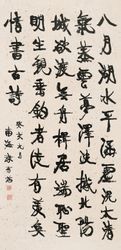 八月湖水平涵虛混太清
氣蒸雲夢澤波撼岳陽
城欲濟無舟楫端居恥聖
明坐觀垂釣者徒有羨魚
情書古詩
癸亥元月
南海